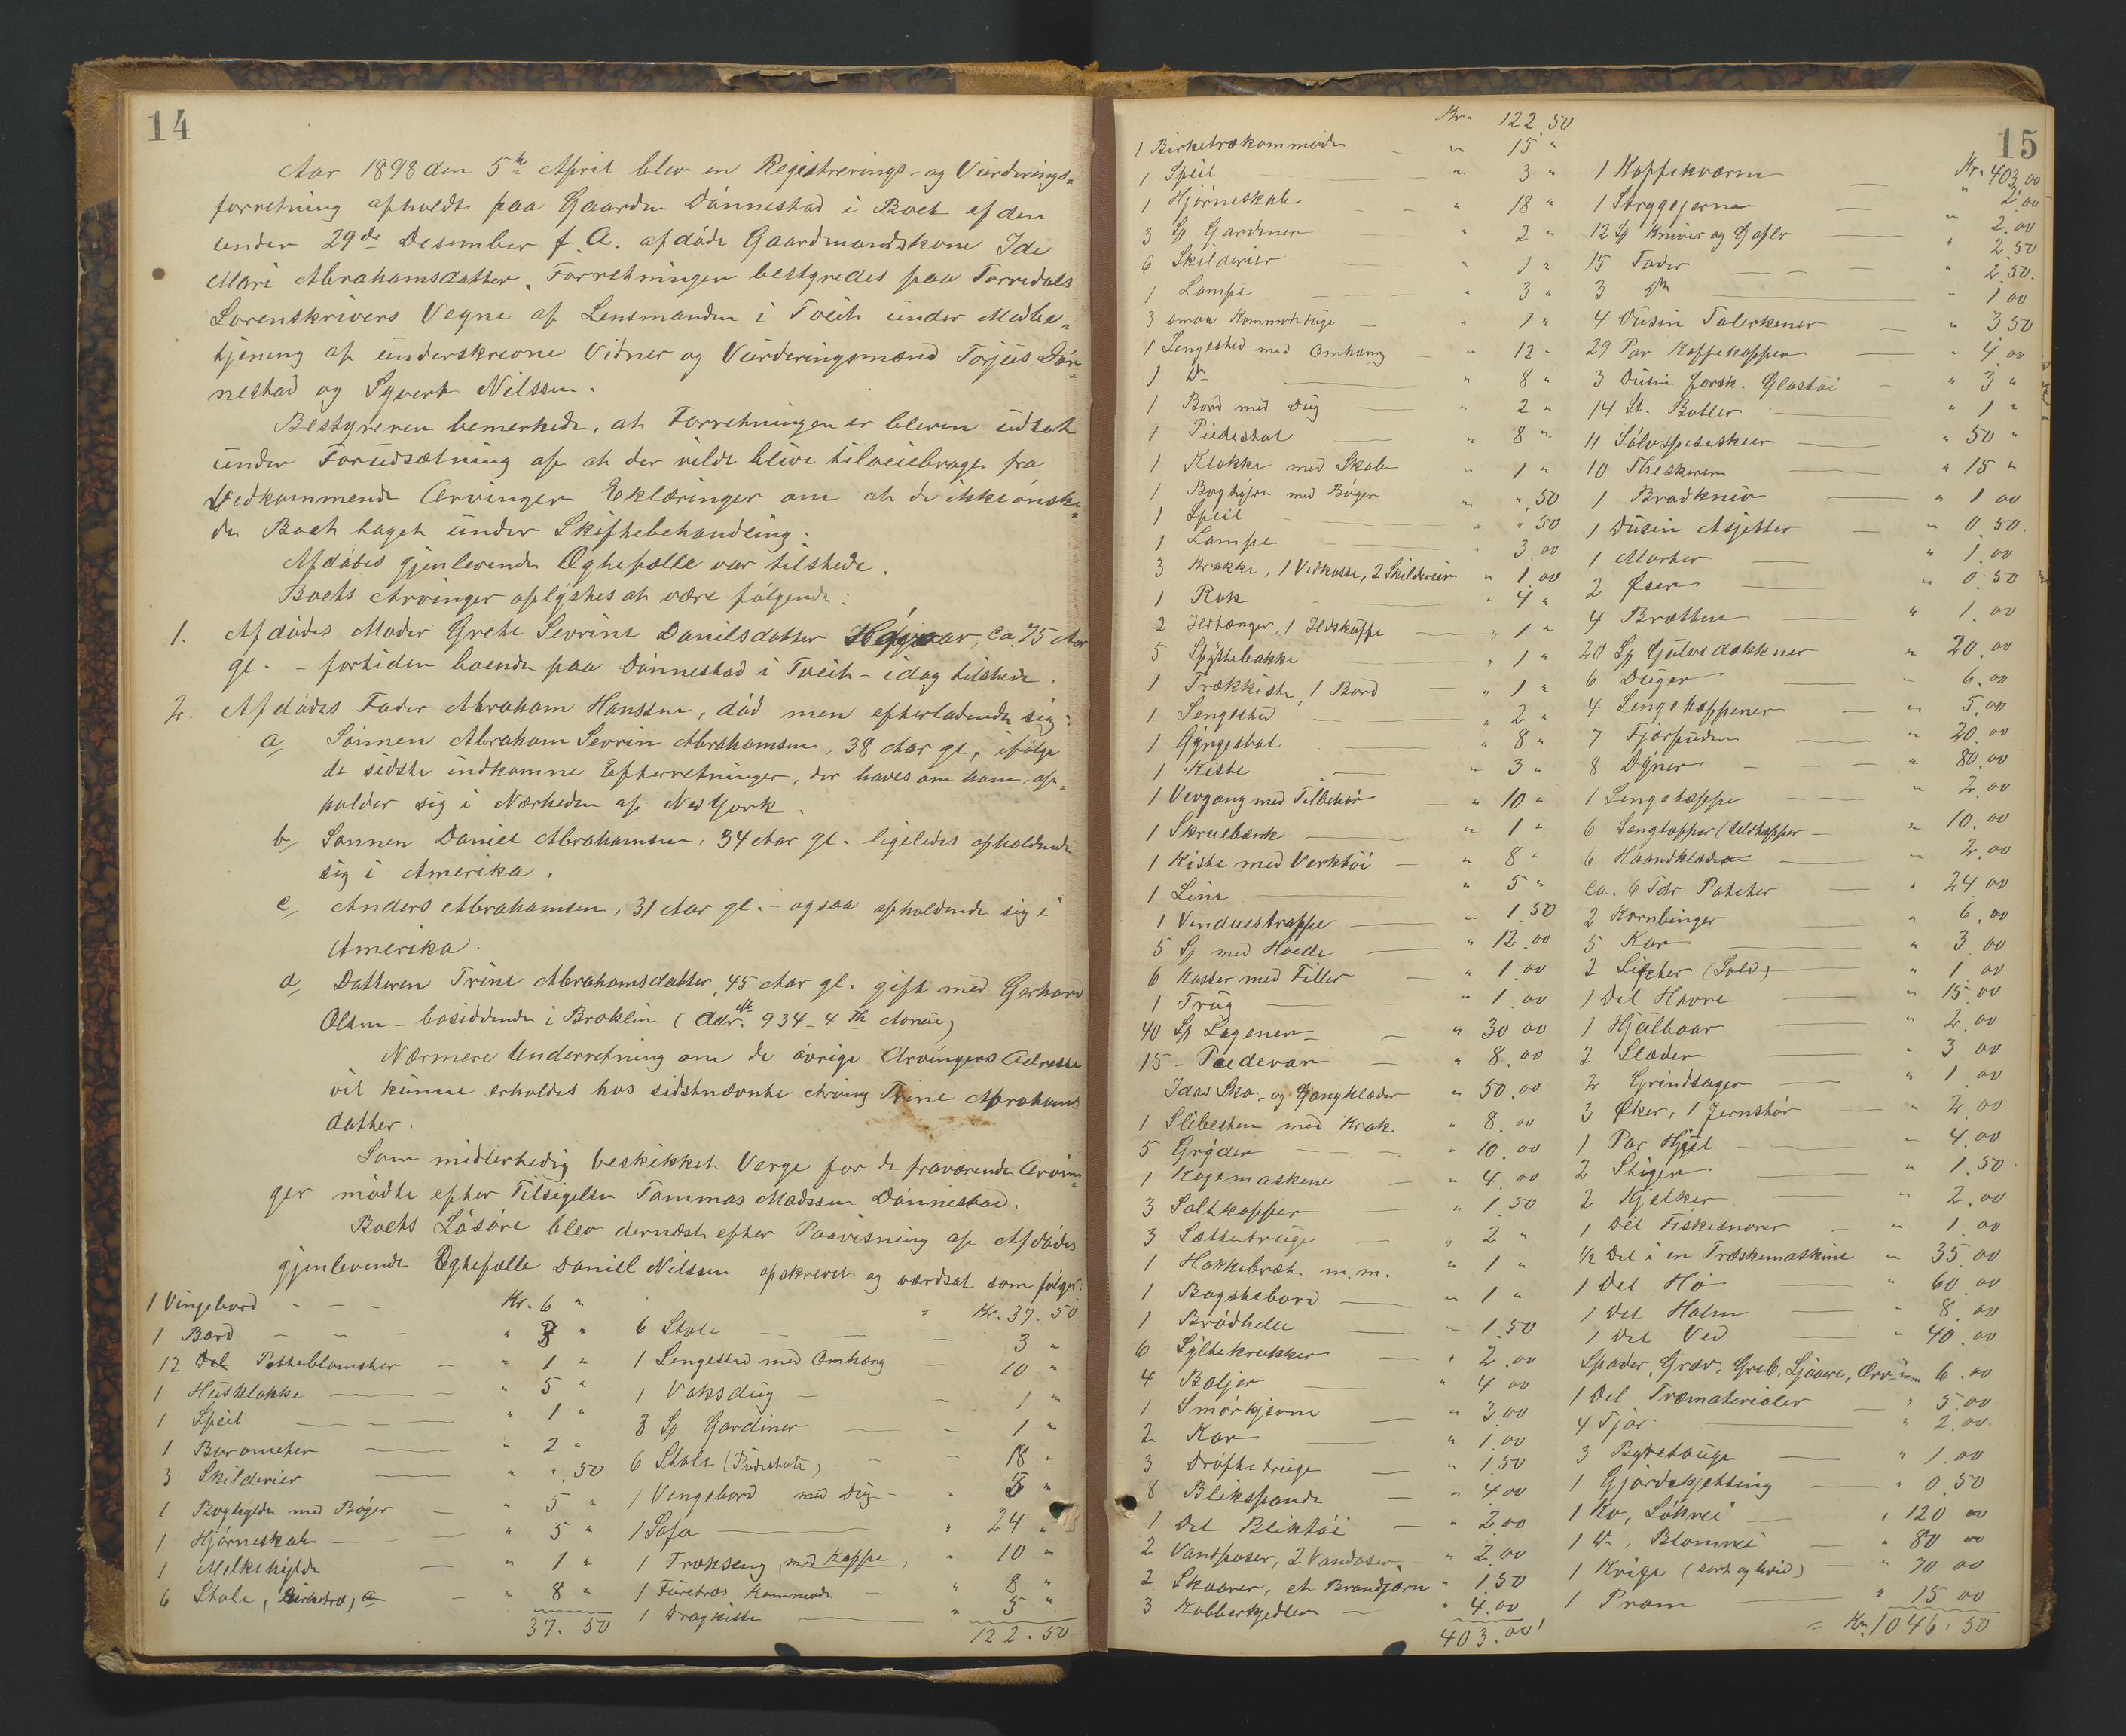 14
Aar 1898 den 5te April blev en Registrerings- og Vurderings-
forretning afholdt paa Gaarden Dönnestad i Boet ef den
under 29de Desember f. A. afdöde Gaardmandskone Ida
Mari Abrahamsdatter. Forretningen bestyredes paa Torridals
Sorenskrivers Vegne af Lensmanden i Tveit under Medbe-
tjening af underskrevne Vidner og Vurderingsmænd Torjus Dön-
nestad og Syvert Nilssen.
Bestyreren bemerkede, at Forretningen er bleven udsat
under Forudsætning af at der vilde blive tilveiebragt fra
Vedkommende Arvinger Eklæringer om at de ikke önske-
de Boet taget under Skiftebehandling.
Afdödes gjenlevende Ægtefælle var tilstede.
Boets Arvinger oplystes at være fölgende:
1. Afdödes Moder Grete Sevrine Danilsdatter ca. 75 Aar
gl. - fortiden boende paa Dönnestad i Tveit - idag tilstede.
2. Afdödes Fader Abraham Hanssen, död men efterladende sig:
a, Sönnen Abraham Sevrin Abrahamsen, 38 Aar gl, ifölge
de sidste indkomne Efterretninger, der haves om ham, op-
holder sig i Nærheden af New York.
b, Sönnen Daniel Abrahamsen, 34 Aar gl. ligeledes opholdende
sig i Amerika.
c, Anders Abrahamsen, 31 Aar gl. - ogsaa opholdende sig i
Amerika.
d, Datteren Trine Abrahamsdatter, 45 Aar gl. gift med Gerhard
Olsen - bosiddende i Broklin (Adr. 934 - 4 Th Avneue)
Nærmere Underretning om de övrige Arvingers Adresse
vil kunne erholdes hos sidstnævnte Arving Trine Abrahams
datter.
Som midlertidig beskikket Verge for de fraværende Arvin-
ger mödte efter Tilsigelse Tommas Madssen Dönnestad.
Boets Lösöre blev dernæst efter Paavisning af Afdödes
gjenlevende Ægtefælle Daniel Nilssen opskrevet og værdsat som fölger:
1 Vingebord - - - Kr. 6 "
1 Bord - - - " 3 "
12 Potteblomster - " 1 "
1 Husklokke - " 5 "
1 Speil - " 1 "
1 Barometer - " 2 "
3 Skilderier - " " 50
1 Boghylde med Böger - " 5 "
1 Hjörneskab - " 5 "
1 Melkehylde - " 1 "
6 Stole, Birketræ, - " 8 "
37. 50
Kr. 37. 50
6 Stole - 3 "
1 Sengested med Omhæng - 10 "
1 Voksdug - 1 "
3 Sp Gardiner - 1 "
6 Stole (Pindestole) - 18 "
1 Vingebord med Dug - " 5 "
1 Sofa - " 24 "
1 Trækseng, med Kappe, " 10 "
1 Furetræs Kommode - " 8 "
1 Dragkiste - " 5 "
122. 50
15
Kr. 122.50
1 Birketrækommode - " 15 "
1 Speil - " 3 "
1 Hjörneskab - " 18 "
3 Sp Gardiner - " 2 "
6 Skilderier - " 1 "
1 Lampe - " 3 "
3 smaa Kommodetuge - " 1 "
1 Sengested med Omhæng - " 12 "
1 Do - " 8 "
1 Bord med Dug - " 2 "
1 Piedestal - " 8 "
1 Klokke med Skab - " 1 "
1 Boghylde med Böger " ".50
1 Speil " " 50
1 Lampe - " 3.00
3 Krakke, 1 Vedkasse, 2 Skilderier " 1.00
1 Rok - " 4 "
2 Ildtænger, 1 Ildskuffe - " 1 "
5 Spyttebakke " 1 "
1 Trækkiste, 1 Bord - " 1 "
1 Sengested - " 2 "
1 Gyngestol " 8 "
1 Kiste - " 3 "
1 Vevgang med Tilbehör " 10 "
1 Skruebænk - " 1 "
1 Kiste med Verktöi - " 8 "
1 Line - " 5 "
1 Vinduestrappe - " 1.50
5 Sp med Hvede - " 12.00
6 Kasser med Filler - " 1.00
1 Trug - " 1.00
40 Sp Lagener - " 30 00
15 - Pudevar - " 8.00
Idas Sko- og Gangklæder " 50.00
1 Slibesten med Krak " 8.00
5 Gryder - " 10.00
1 Kogemaskine - " 4.00
3 Saltkopper - " 1.50
3 Sættetruge - " 2 "
1 Hakkebræt m.m. " 1 "
1 Bagstebord - " 1 "
1 Brödhelle - " 1.50
6 Syltekrukker - " 2.00
4 Baljer - " 4 00
1 Smörkjerne - " 3.00
2 Kar - " 1.00
3 Dröftetruge - " 1.50
8 Blikspande - " 4.00
1 Del Bliktöi - " 2.00
2 Vandpøser, 2 Vandøser, " 2.00
2 Skaaver, et Brandjærn " 1.50
3 Kobberkjedler - " 4.00
403.00
Kr. 403.00
1 Kaffekværn - " 2.00
1 Strygejern - " 2.00
12 Sp Kniver og Gafler - " 2.50
15 Fader - " 2.50.
3 Do - " 1 00
4 Dusin Talerkener - " 3 50
29 Par Kaffekopper - " 4 00
3 Dusin forsk. Glastöi - " 3 "
14 St. Botler - " 1 "
11 Sölvspiseskeer - " 50 "
10 Theskeer - " 15 "
1 Brødkniv - " 1 00
1 Dusin Asjetter - " 0.50.
1 Morter " 1.00
2 Øser - " 0.50
4 Brætter - " 1.00
20 Sp Gulvedækkner " 20.00
6 Duger - " 6.00
4 Sengekappener - " 5.00
7 Fjærpuder - " 20.00
8 Dyner - " 80.00
1 Sengetæppe - " 2.00
6 Sengtæpper (Uldtæpper - " 10.00
6 Haandklæder - " 2.00
ca. 6 Tdr Poteter - " 24 00
2 Kornbinger " 6.00
5 Kar - " 3 00
2 Sigter (Sold) - " 1 00
1 Del Havre - " 15.00
1 Hjulbaar - " 2.00
2 Slæder - " 3 00
2 Grindsager - " 1 00
3 Øxer, 1 Jernstör - " 2.00
1 Par Hjul - " 4.00
2 Stiger - " 1.50.
2 Kjelker - " 2.00
1 Del Fiskesnorer - " 1.00
1/2 Del i en Træskemaskine " 35.00
1 Del Hö " 60.00
1 Del Halm - " 8.00
1 Del Ved - " 40.00
Spader, Græv, Greb, Ljaaer, 6.00
1 Del Træmaterialer - " 5.00
4 Tjor - " 2.00.
3 - " 1.00
1 - " 0.50
1 Ko, Lökrei - " 120 00
1 Do, Blomrei - " 80 00
1 Kvige (sort og hvid) - " 70 00
1 Pram - " 15 00
= Kr. 1046.50